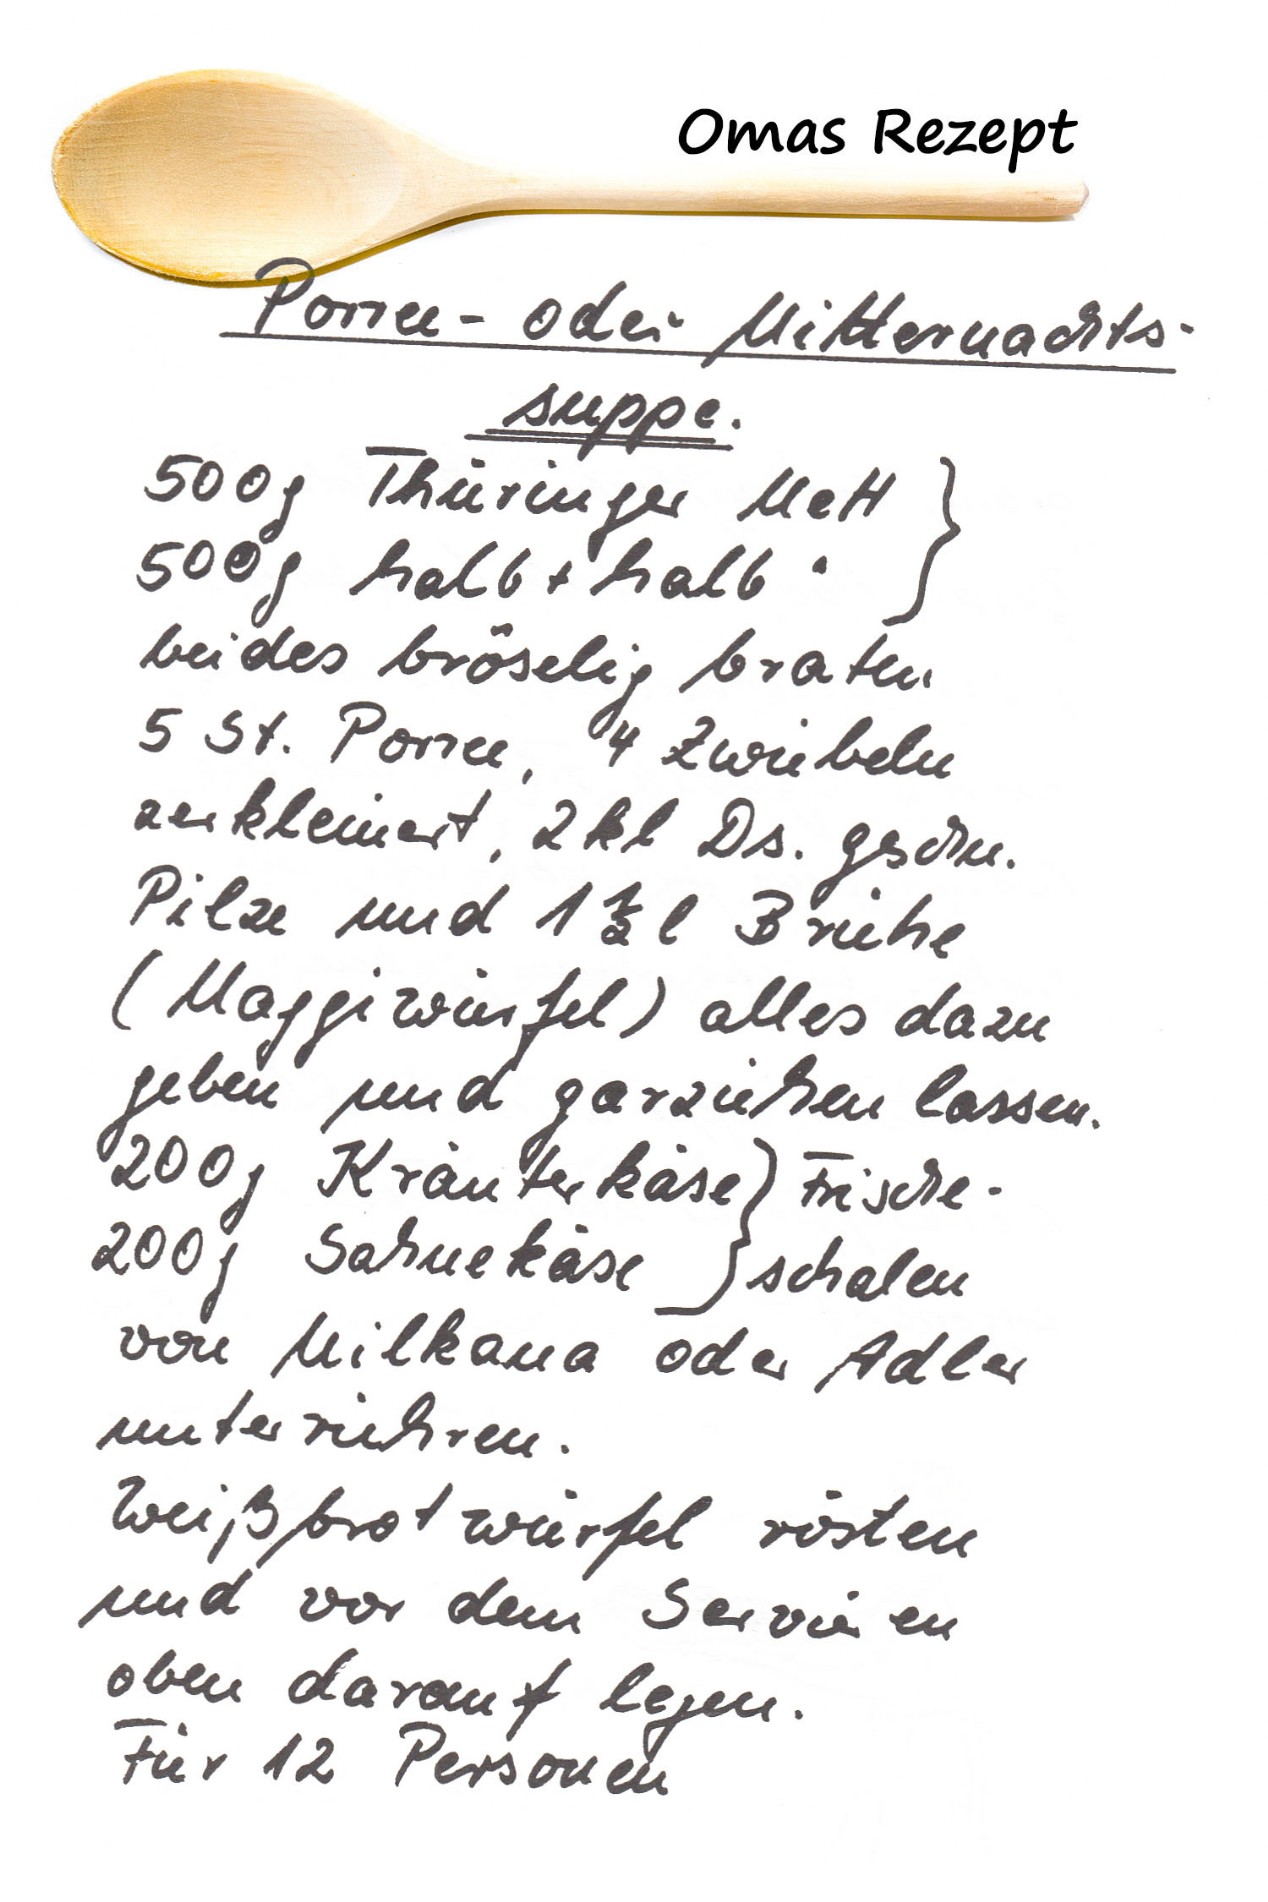 Omas Rezept
Porree- oder Mitternachts-
suppe.
500g Thüringer Mett }
500g halb + halb }
beides bröselig braten
5 St. Porree, 4 Zwiebeln
zerkleinert, 2 kl Ds. geschn.
Pilze und 1 1/2 l Brühe
(Maggiwürfel) alles dazu
geben und garziehen lassen.
200g Kräuterkäse } Frische-
200g Sahnekäse } schalen
von Milkana oder Adler
unterrühren.
Weißbrotwürfel rösten
und vor dem Servieren
oben darauf legen.
Für 12 Personen